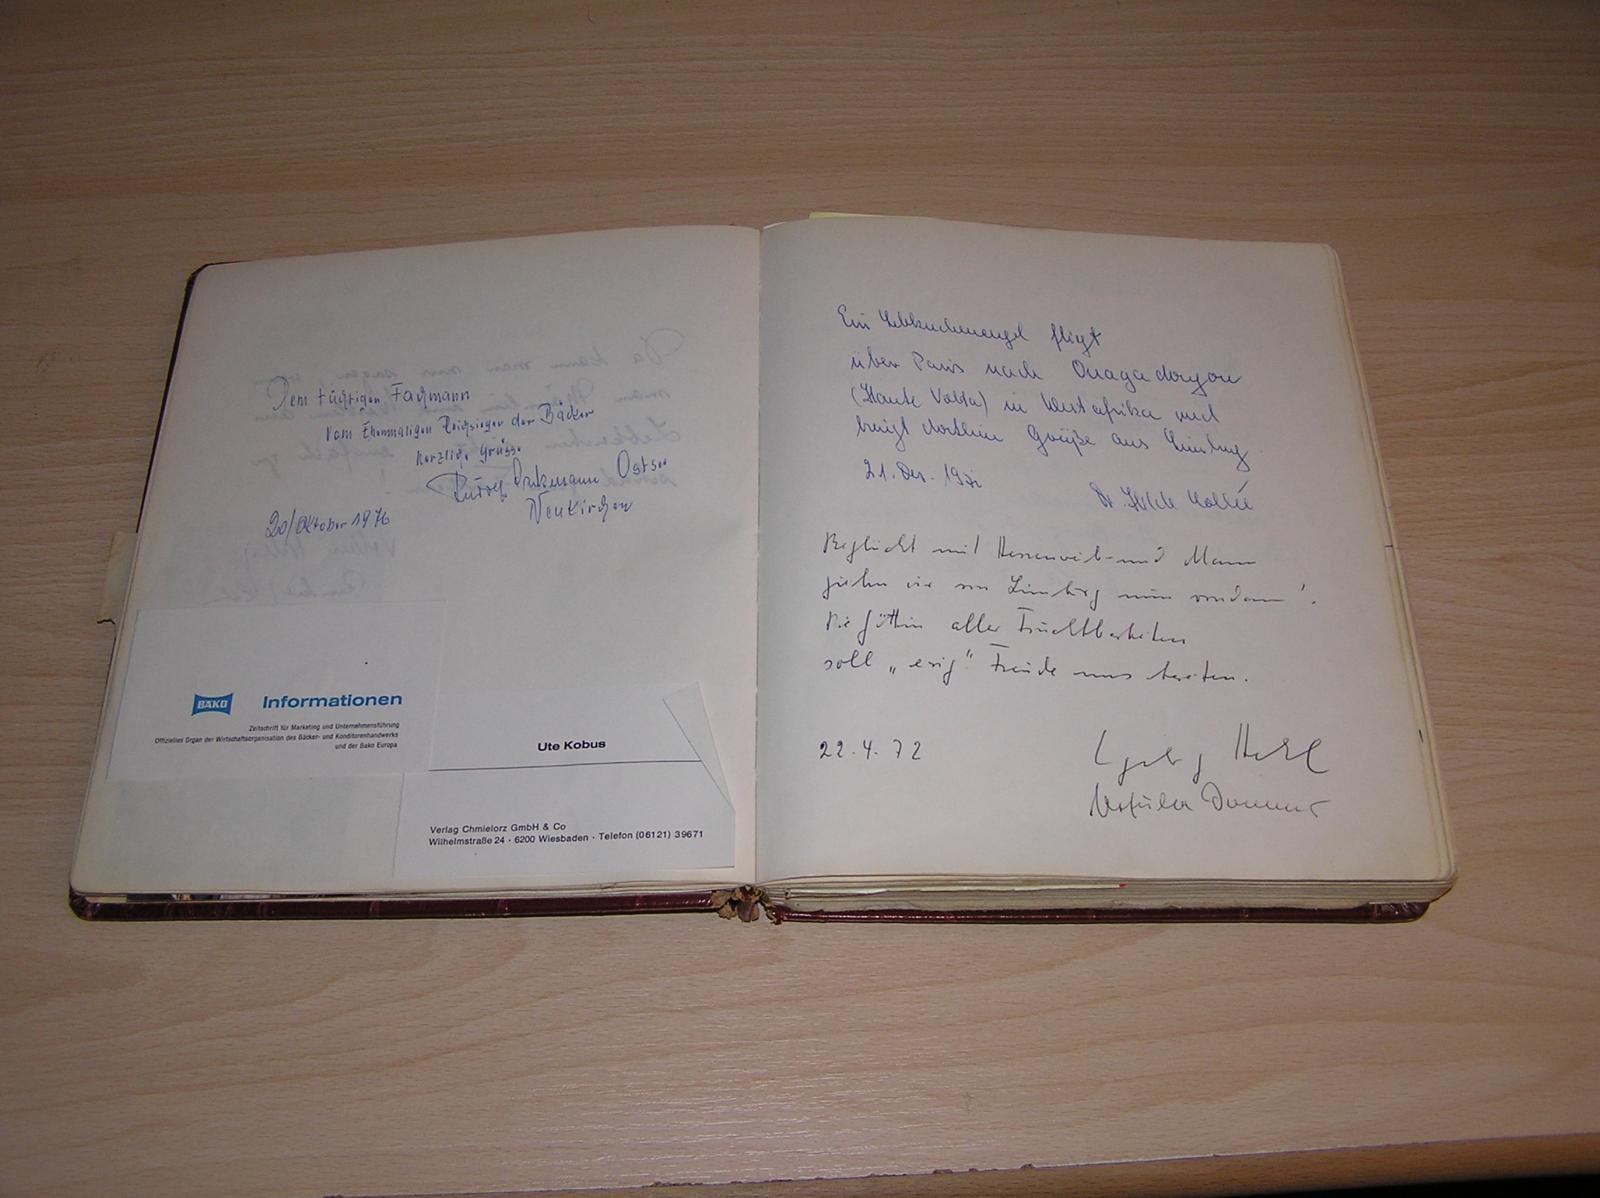 Dem tüchtigen Fachmann
vom Ehemaligen Reichssieger der Bäcker
herzliche Grüsse
Rudolf
Neukirchen
20/Oktober 1976
BAKO Informationen
Zeitschrift für Marketing und Unternehmensführung
Offizielles Organ der Wirtschaftsorganisation des Bäcker- und Konditorenhandwerks
und der Bako Europa
Ute Kobus
Verlag Chmielorz GmbH & Co
Wilhelmstraße 24 · 6200 Wiesbaden · Telefon (06121) 39671
Ein Lebkuchenengel fliegt
über Paris nach Ouagadougou
(Haute Volta) in Westafrika und
bringt dorthin Grüße aus Limburg
21. Dez.
Dr. Hilde
mit Hessenweib und Mann
ziehn wir von Limburg nun vondann!
Die Göttin aller Fruchtbarkeiten
soll „ewig" Freude uns bereiten.
22.4.72
Ursula